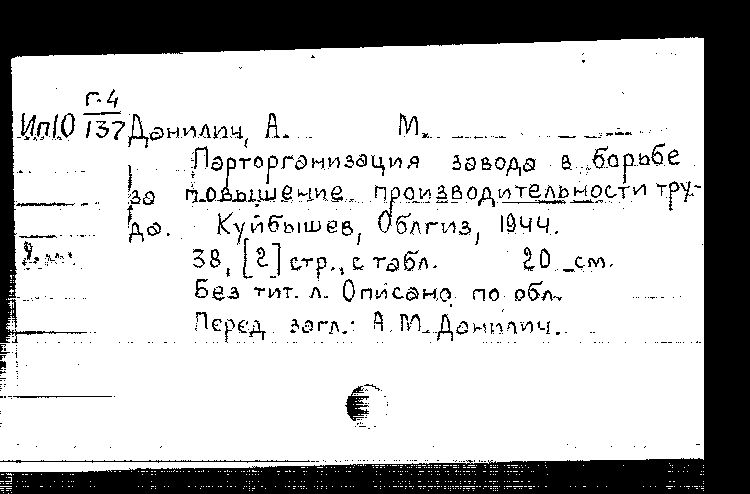 г.4
Ип10 137 Данилич, А. М.
Парторганизация завода в борьбе
за повышение производительности тру-
да. Куйбышев, Облгиз, 1944.
38, [2] стр., с табл. 20 см.
Без тит. л. Описано по обл.
Перед загл.: А.М. Данилич.